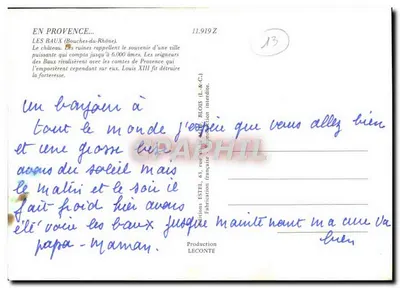 EN PROVENCE...
11.919 Z
13
LES BAUX (Bouches-du-Rhône)
Le château. Les ruines rappellent le souvenir d'une ville
puissante qui compta jusqu'à 6.000 âmes. Les seigneurs
des Baux rivalisèrent avec les comtes de Provence qui
l'emportèrent cependant sur eux. Louis XIII fit détruire
la forteresse.
un bonjour à
tout le monde j'espère que vous allez bien
et une grosse bise
avons du soleil mais
le matin et le soir il
fait froid hier avons
été voir les baux jusque maintenant ma cure va
papa - maman. bien
Editions ESTEL, BLOIS (L.-&-C.)
Fabrication française interdite.
Production
LECONTE
CPAPHIL